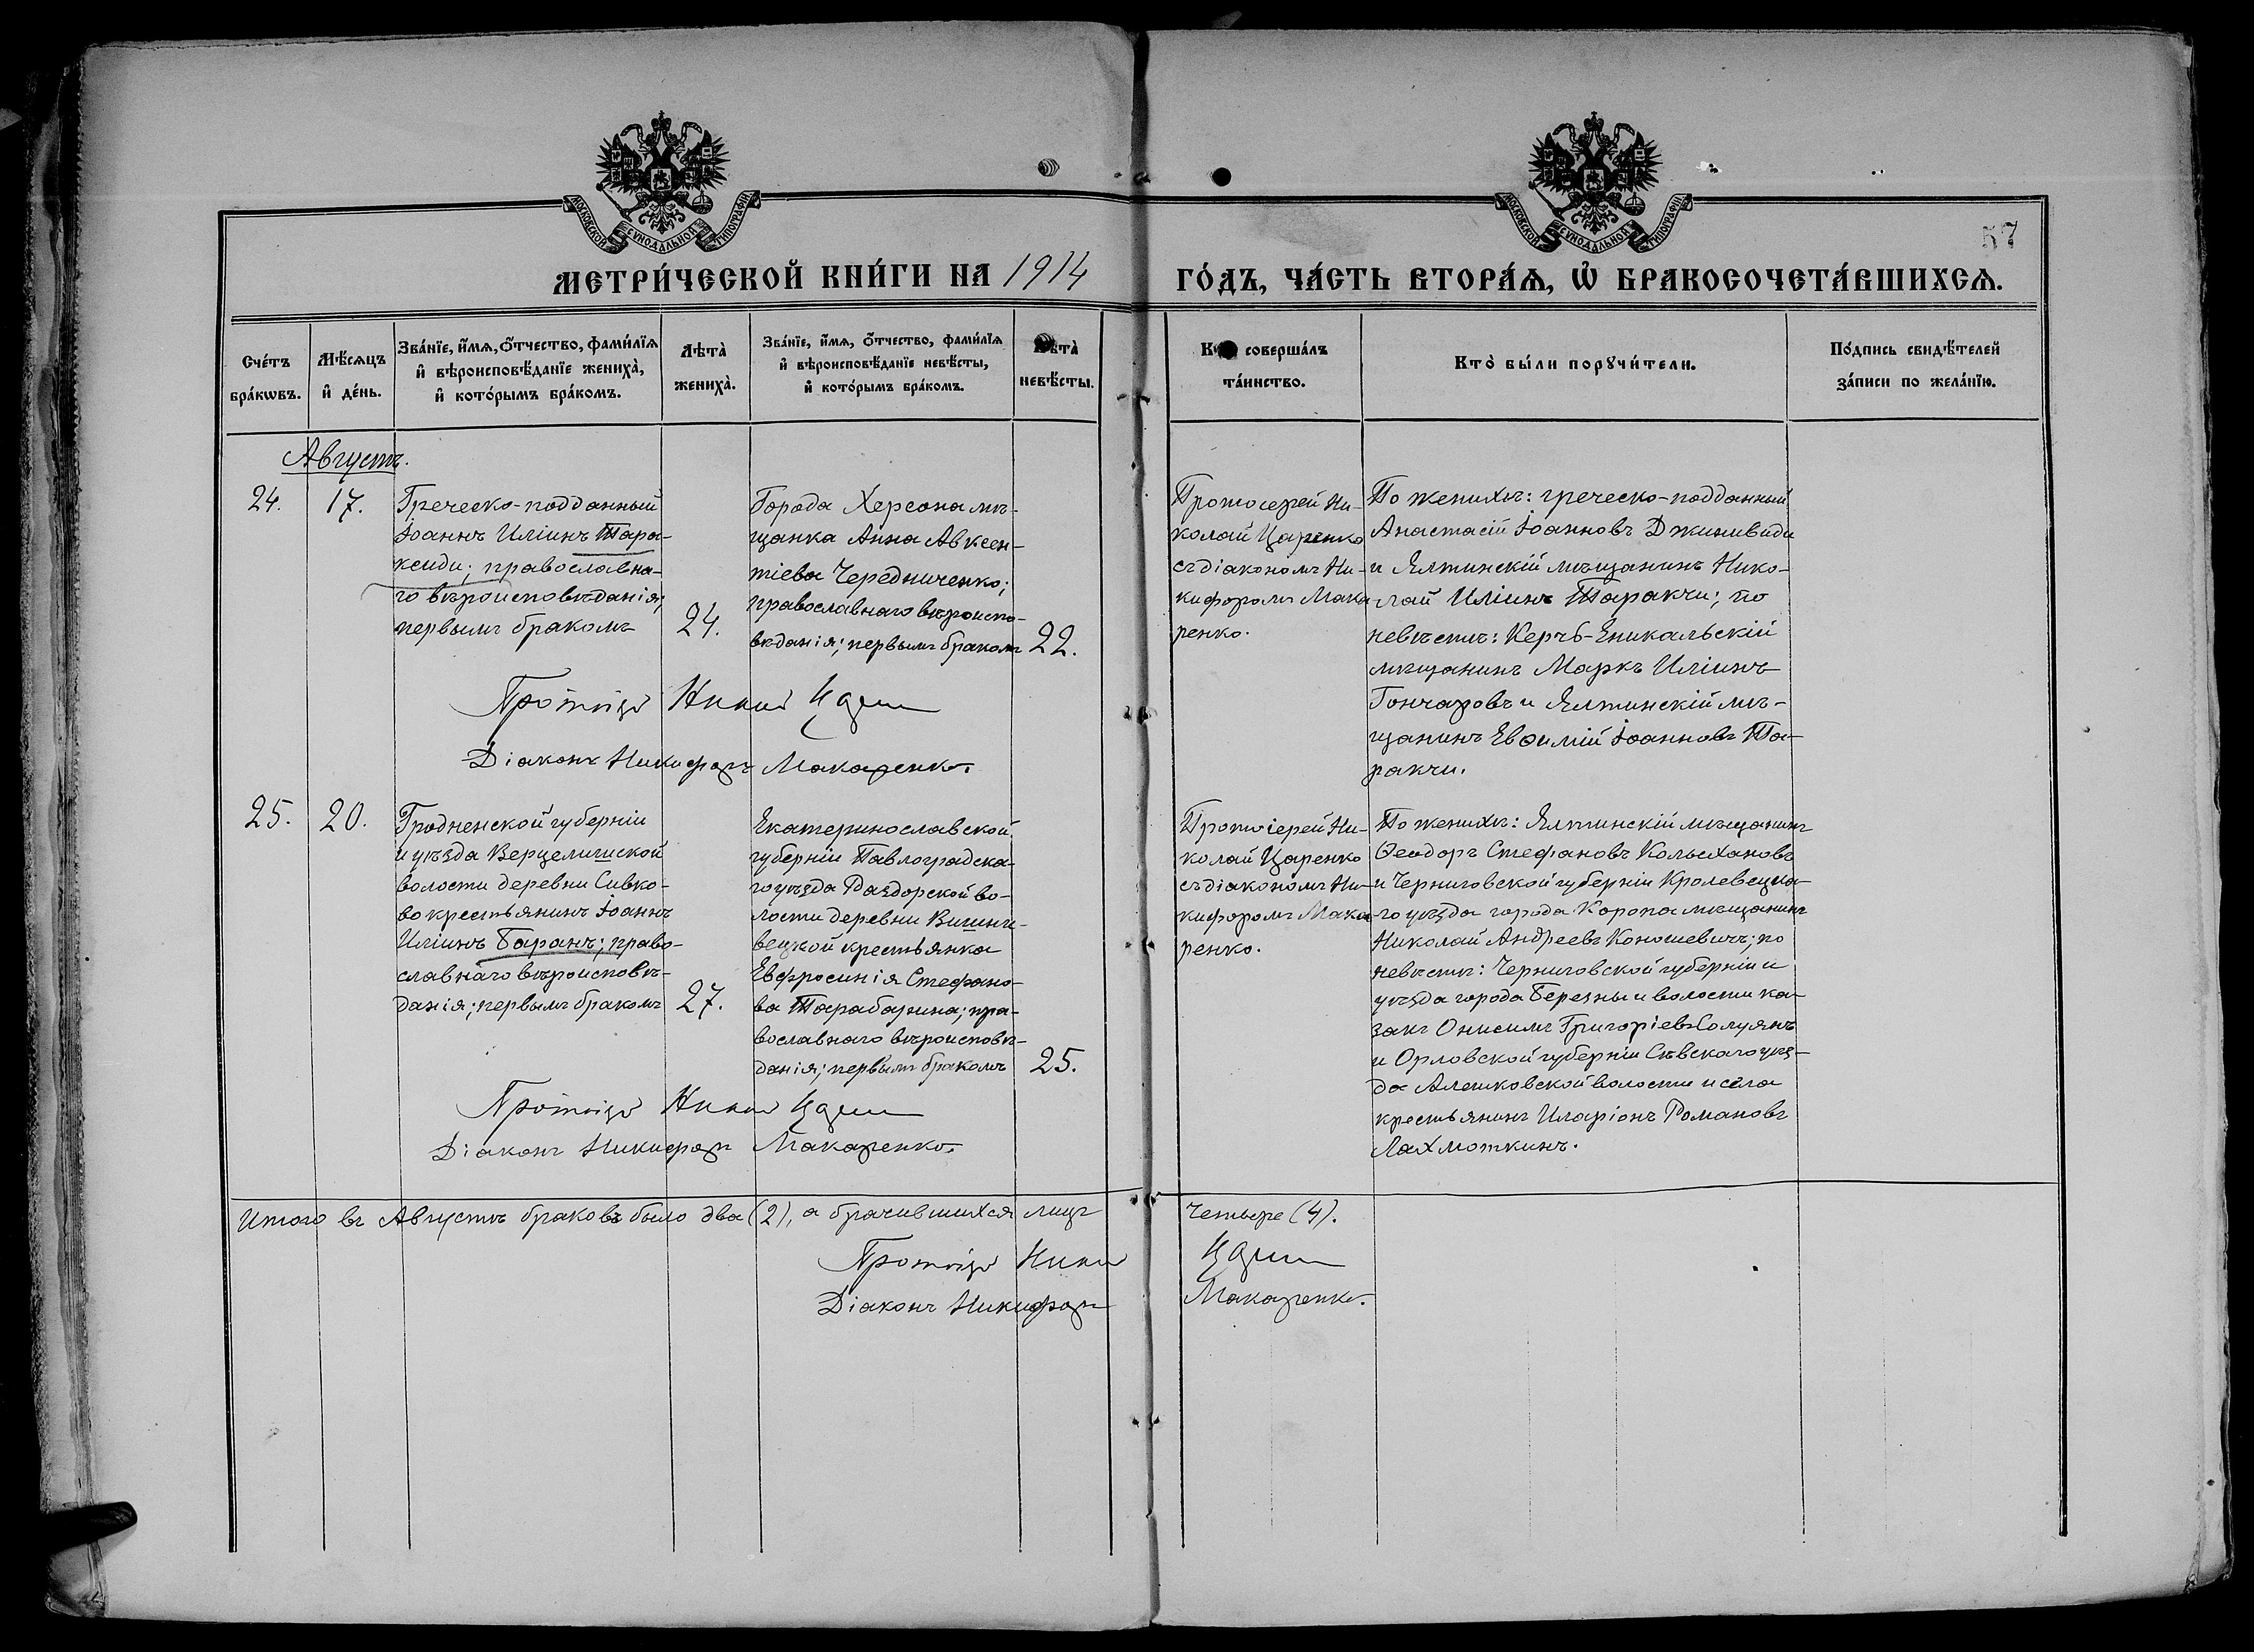 МОСКОВСКОЙ СѴНОДАЛЬНОЙ ТИПОГРАФІИ
МОСКОВСКОЙ СѴНОДАЛЬНОЙ ТИПОГРАФІИ
57
МЕТРИ́ЧЕСКОЙ КНИ́ГИ НА 1914
ГО́ДЪ, ЧА́СТЬ ВТОРА́Ѧ, Ѡ҆ БРАКОСОЧЕТА́ВШИХСѦ.
Сче́тъ бра́кѡвъ.
Мѣ́сѧцъ и҆ де́нь.
Зва́нїе, и҆́мѧ, ѻ҆́тчество, фами́лїѧ
и҆ вѣроисповѣ́данїе жениха̀,
и҆ кото́рымъ бра́комъ.
Лѣта̀ жениха̀.
Зва́нїе, и҆́мѧ, ѻ҆́тчество, фами́лїѧ
и҆ вѣроисповѣ́данїе невѣ́сты,
и҆ кото́рымъ бра́комъ.
Лѣта̀ невѣ́сты.
совершáлъ
та́инство.
Кто̀ бы́ли порꙋчи́тели.
По́дпись свидѣ́телей
за́писи по жела́нїю.
Августъ.
24.
17.
Греческо-подданный
Іоаннъ Иліинъ Тара-
ксиди; православна-
го вѣроисповѣданія;
первымъ бракомъ
24.
Города Херсона мѣ-
щанка Анна Авксен-
тіева Чередниченко;
православнаго вѣроиспо-
вѣданія; первымъ бракомъ
22.
Протоіерей Ни-
колай Царенко
съ діакономъ Ни-
кифоромъ Мака-
ренко.
По женихѣ: греческо-подданный
Анастасій Іоанновъ Джинивиди
и Ялтинскій мѣщанинъ Нико-
лай Иліинъ Таракчи; по
невѣстѣ: Керчь-Еникальскій
мѣщанинъ Маркъ Иліинъ
Гончаровъ и Ялтинскій мѣ-
щанинъ Евѳимій Іоанновъ Та-
ракчи.
Діаконъ Никифоръ Макаренко.
25.
20.
Гродненской губерніи
и уѣзда Верцелишской
волости деревни Сивко-
во крестьянинъ Іоаннъ
Иліинъ Баранъ; право-
славнаго вѣроисповѣ-
данія; первымъ бракомъ
27.
Екатеринославской
губерніи Павлоградска-
го уѣзда Раздорской во-
лости деревни
крестьянка
Евфросинія Стефано-
ва Тарабарина; пра-
вославнаго вѣроисповѣ-
данія; первымъ бракомъ
25.
Протоіерей Ни-
колай Царенко
съ діакономъ Ни-
кифоромъ Мака-
ренко.
По женихѣ: Ялтинскій мѣщанинъ
Ѳеодоръ Стефановъ Колыхановъ
и Черниговской губерніи Кролевецка-
го уѣзда города Коропа мѣщанинъ
Николай Андреевъ Коношевичъ; по
невѣстѣ: Черниговской губерніи и
уѣзда города Березны и волости ка-
закъ Онисимъ Григоріевъ Солуянъ
и Орловской губерніи Сѣвскаго уѣз-
да Алешковской волости и села
крестьянинъ Иларіонъ Романовъ
Лахмоткинъ.
Діаконъ Никифоръ Макаренко.
Итого въ Августѣ браковъ было два (2), а брачившихся лицъ четыре (4).
Діаконъ Никифоръ Макаренко.